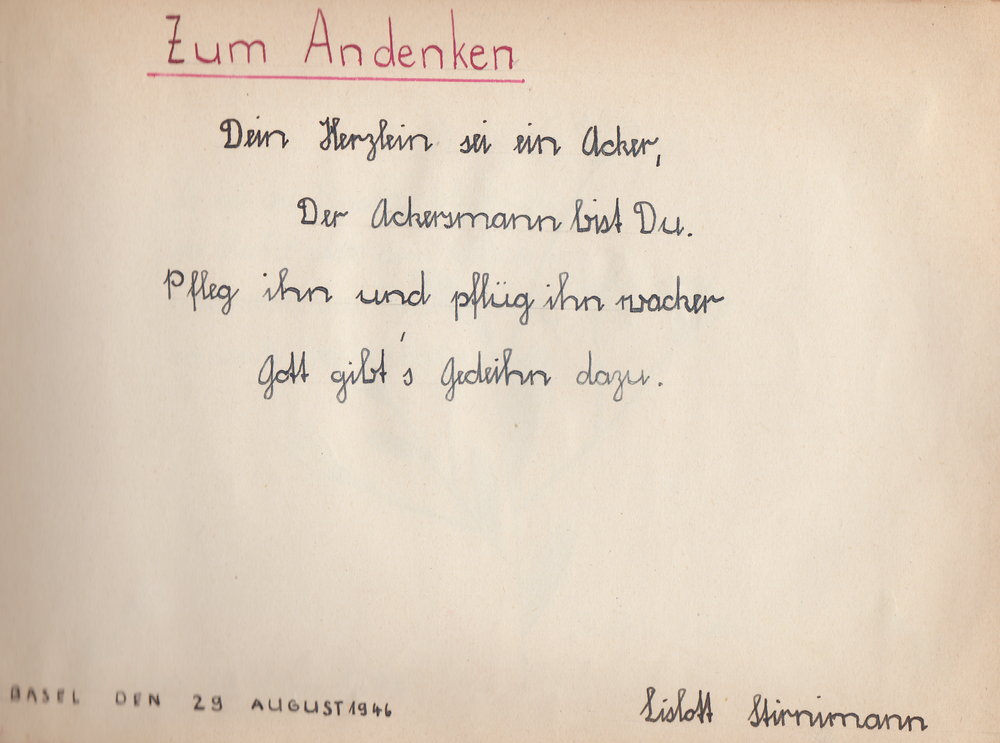 Zum Andenken
Dein Herzlein sei ein Acker,
Der Ackersmann bist Du.
Pfleg ihn und pflüg ihn wacker
Gott gibt's Gedeihn dazu.
BASEL DEN 29 AUGUST 1946
Lislott Stirnimann